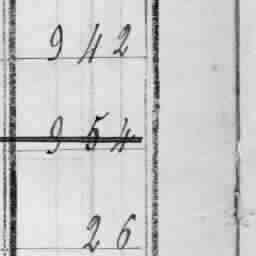 942
954
26